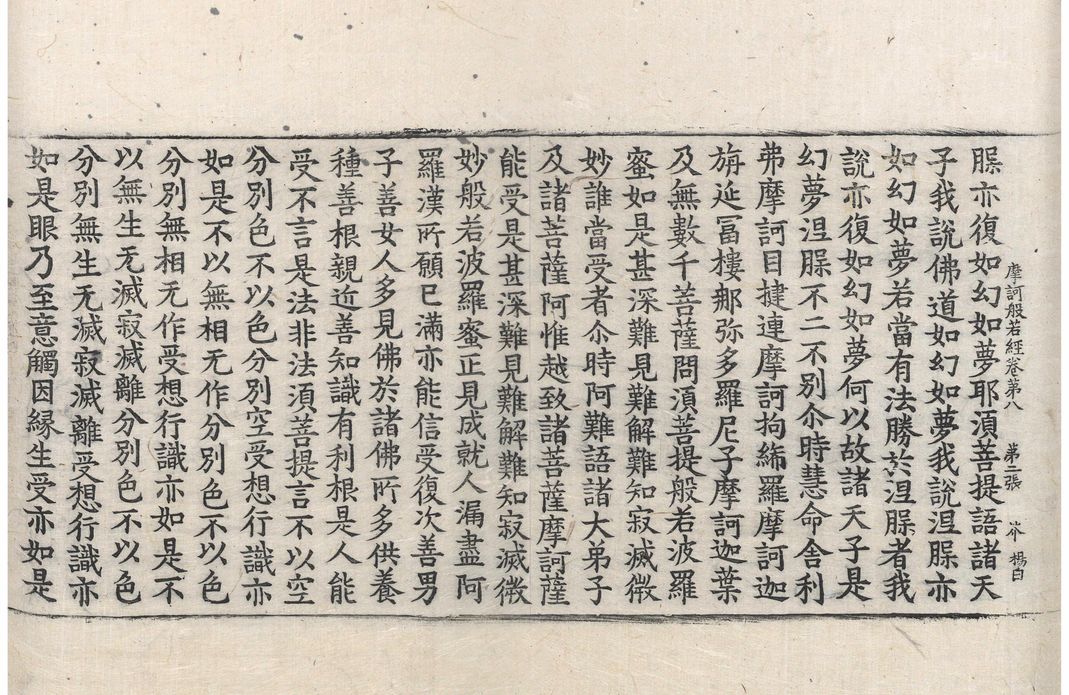 槃亦復如幻如夢耶湏菩提語諸天
摩訶般若經卷第八 第二張 芥 楊白
子我說佛道如幻如夢我說涅槃亦
如幻如夢若當有法勝於涅槃者我
說亦復如幻如夢何以故諸天子是
幻夢涅槃不二不別尒時慧命舍利
弗摩訶目揵連摩訶拘絺羅摩訶迦
旃延冨樓那弥多羅尼子摩訶迦葉
及無數千菩薩問湏菩提般若波羅
蜜如是甚深難見難解難知寂滅微
妙誰當受者尒時阿難語諸大弟子
及諸菩薩阿惟越致諸菩薩摩訶薩
能受是甚深難見難解難知寂滅微
妙般若波羅蜜正見成就人漏盡阿
羅漢所願已滿亦能信受復次善男
子善女人多見佛於諸佛所多供養
種善根親近善知識有利根是人能
受不言是法非法湏菩提言不以空
分別色不以色分別空受想行識亦
如是不以無相无作分別色不以色
分別無相无作受想行識亦如是不
以無生无滅寂滅離分別色不以色
分別無生无滅寂滅離受想行識亦
如是眼乃至意觸因緣生受亦如是